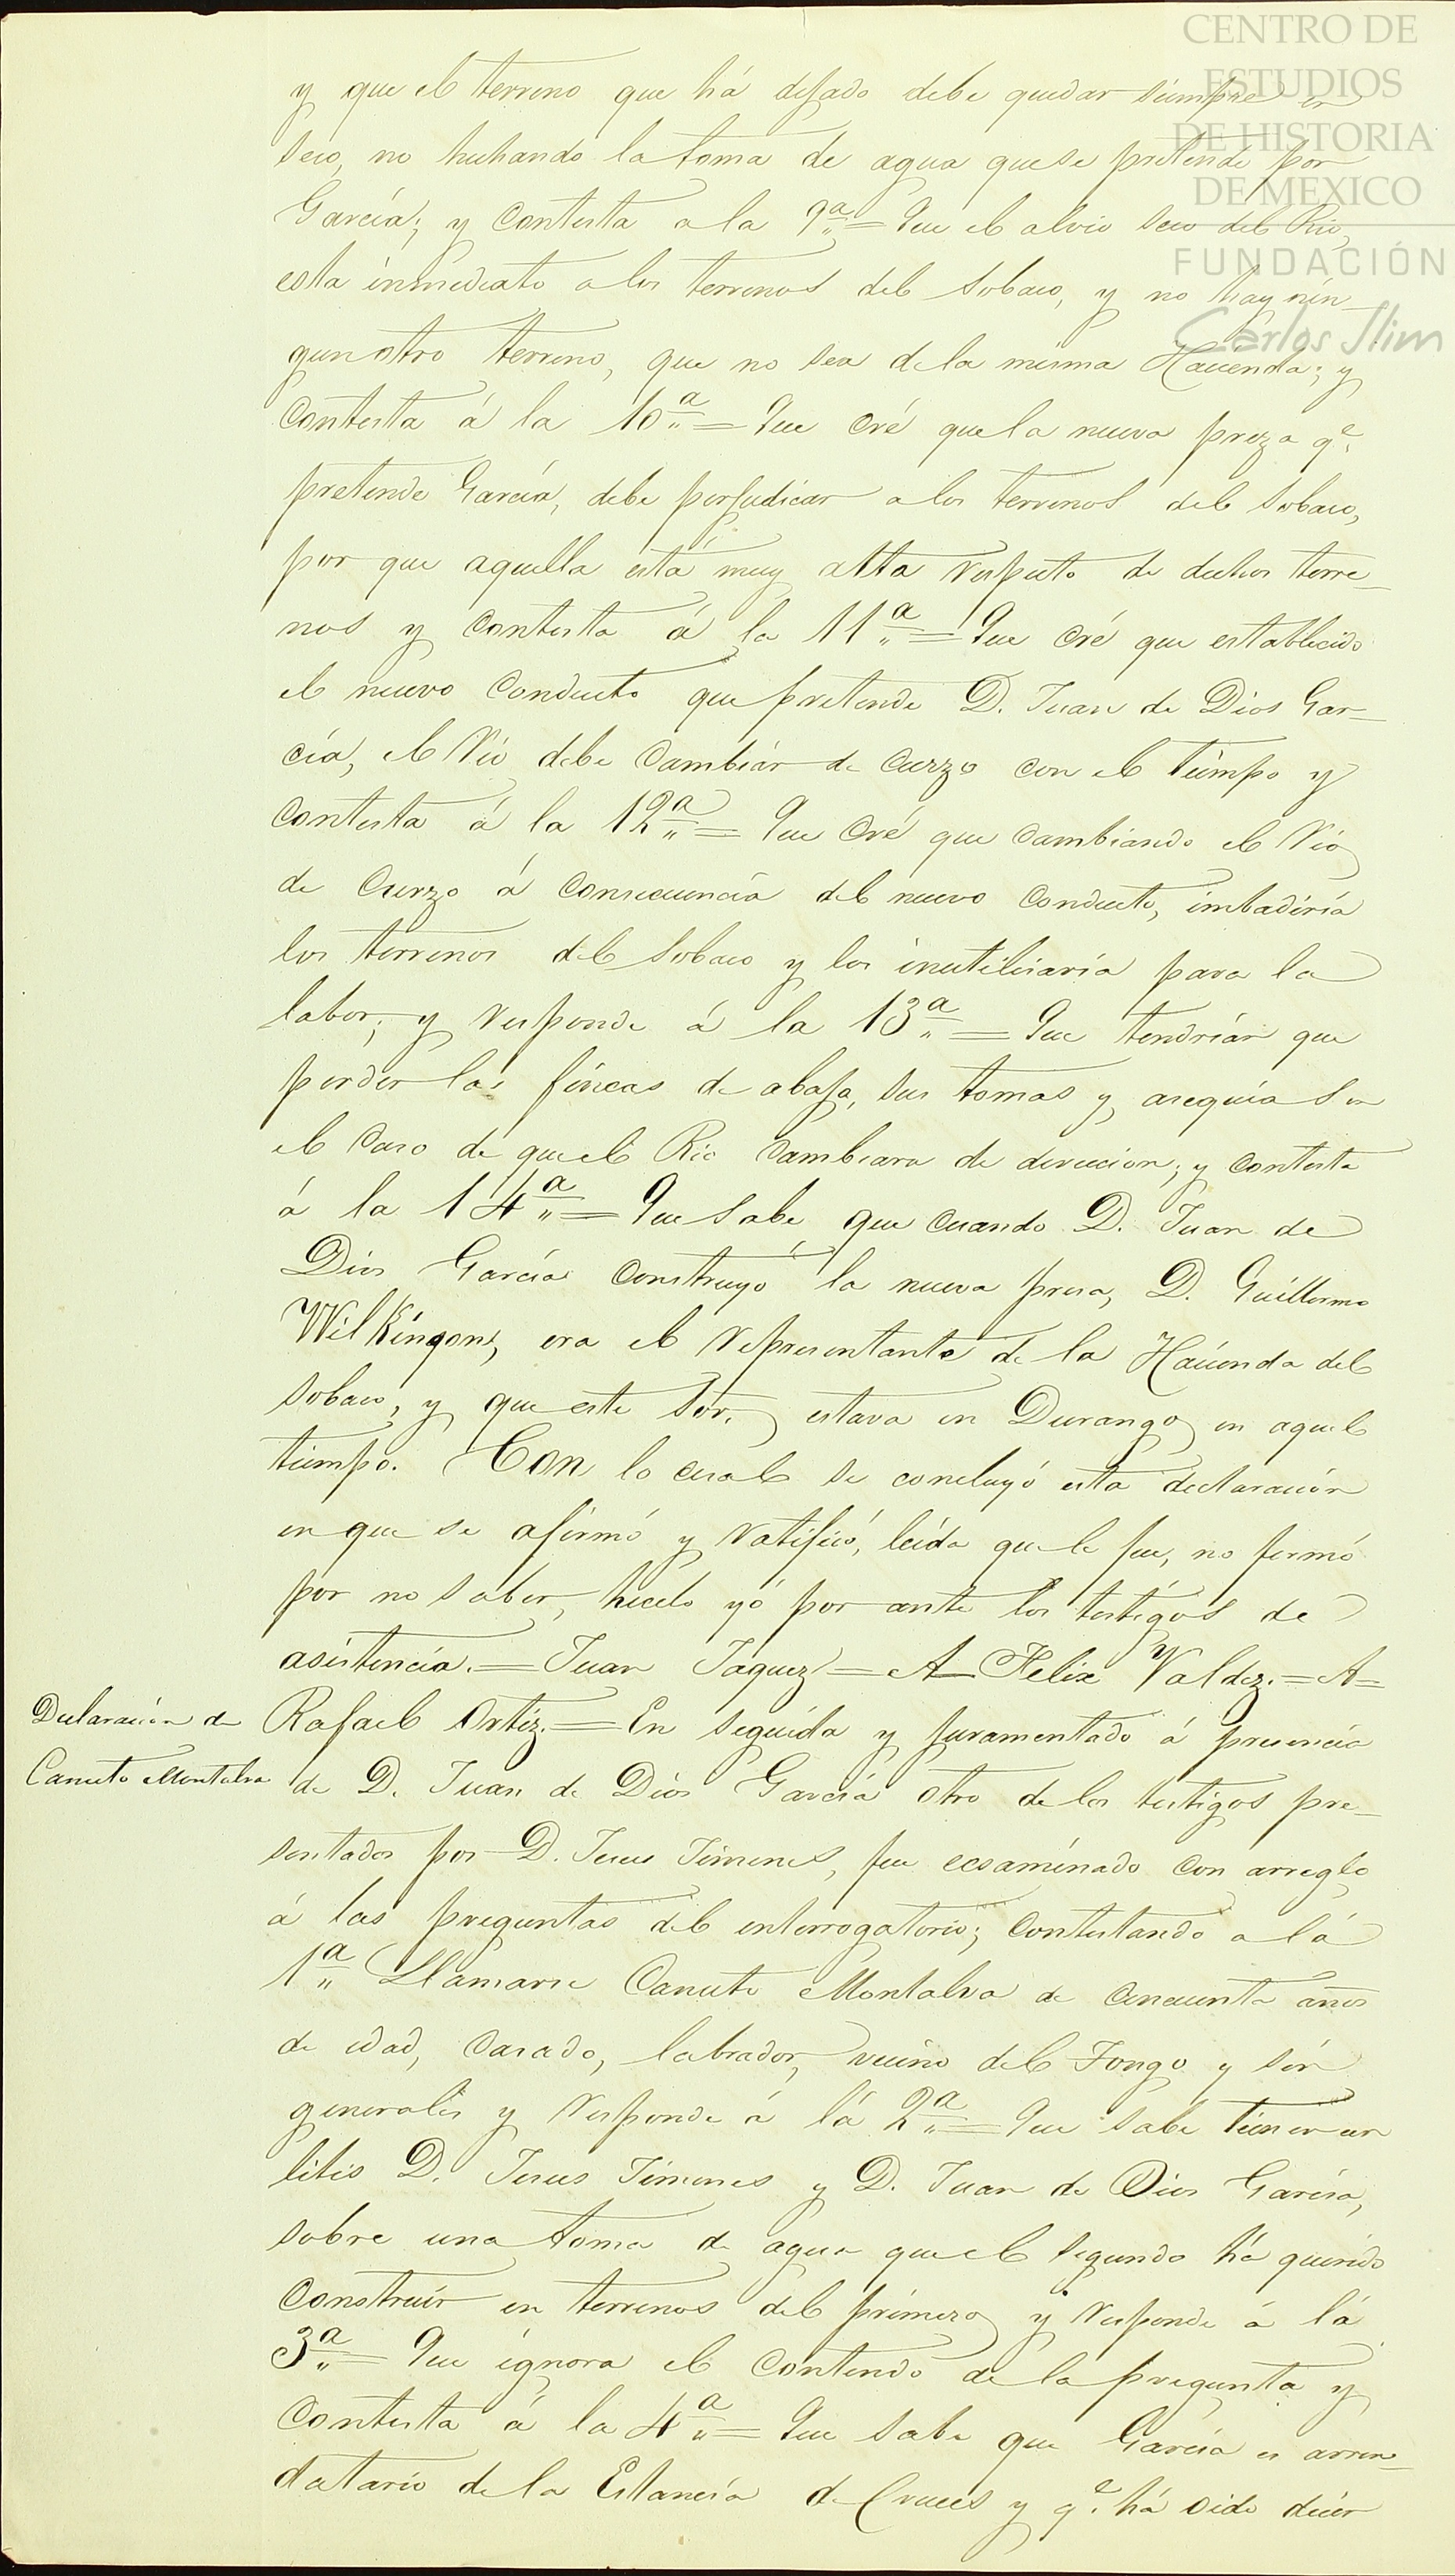 CENTRO DE
ESTUDIOS
DE HISTORIA
DE MEXICO
FUNDACIÓN
Carlos Slim
y que el terreno que há dejado debe quedar siempre en
seco, no hechando la toma de agua que se pretende por
García; y contesta a la 9ª = Que el alvio seco del Rio,
esta inmediato a los terrenos del Sobaco, y no hay nin_
gun otro terreno, que no sea de la misma Hacienda; y
contesta á la 10ª = Que cré que la nueva preza qe.
pretende García, debe perjudicar a los terrenos del Sobaco,
por que aquella está muy alta respecto de dichos terre_
nos y contesta á la 11ª = Que cré que establecido
el nuevo conducto que pretende D. Juan de Dios Gar_
cía, el Rio debe cambiár de curzo con el tiempo y
contesta á la 12ª = Que cré que cambiando el Rio
de curzo á consecuencia del nuevo conducto, imbadiría
los terrenos del Sobaco y los inutilisaría para la
labor; y responde á la 13ª = Que tendrían que
perder las fincas de abajo, sus tomas y asequias en
el caso de que el Rio cambiara de direccion; y contesta
á la 14ª = Que sabe que cuando D. Juan de
Dios García construyó la nueva presa, D. Guillermo
Wilkingons, era el representante de la Hacienda del
Sobaco, y que este Sor. estava en Durango en aquel
tiempo. Con lo cual se concluyó esta declaración
en que se afirmó y ratificó, leída que le fue, no firmó
por no saber, hicelo yó por ante los testigos de
asistencia. = Juan Jaquez = A Felix Valdez. = A =
Declaración de
Canuto Montalva
Rafael Ortiz. = En seguida y juramentado á presencia
de D. Juan de Dios García otro de los testigos pre_
sentados por D. Jesus Jimenes, fue ecsaminado con arreglo
á las preguntas del interrogatorio; contestando a lá
1ª Llamarse Canuto Montalva de cincuenta años
de edad, casado, labrador, vecino del Fongo y sin
generales y responde á lá 2ª = Que sabe tienen un
litis D. Jesus Jimenes y D. Juan de Dios García,
sobre una toma de agua que el segundo há querido
construir en terrenos del primero y responde á lá
3ª = Que ignora el contenido de la pregunta y
contesta á la 4ª = Que sabe que García es arren_
datario de la Estancia de Cruces y qe. há oido decir